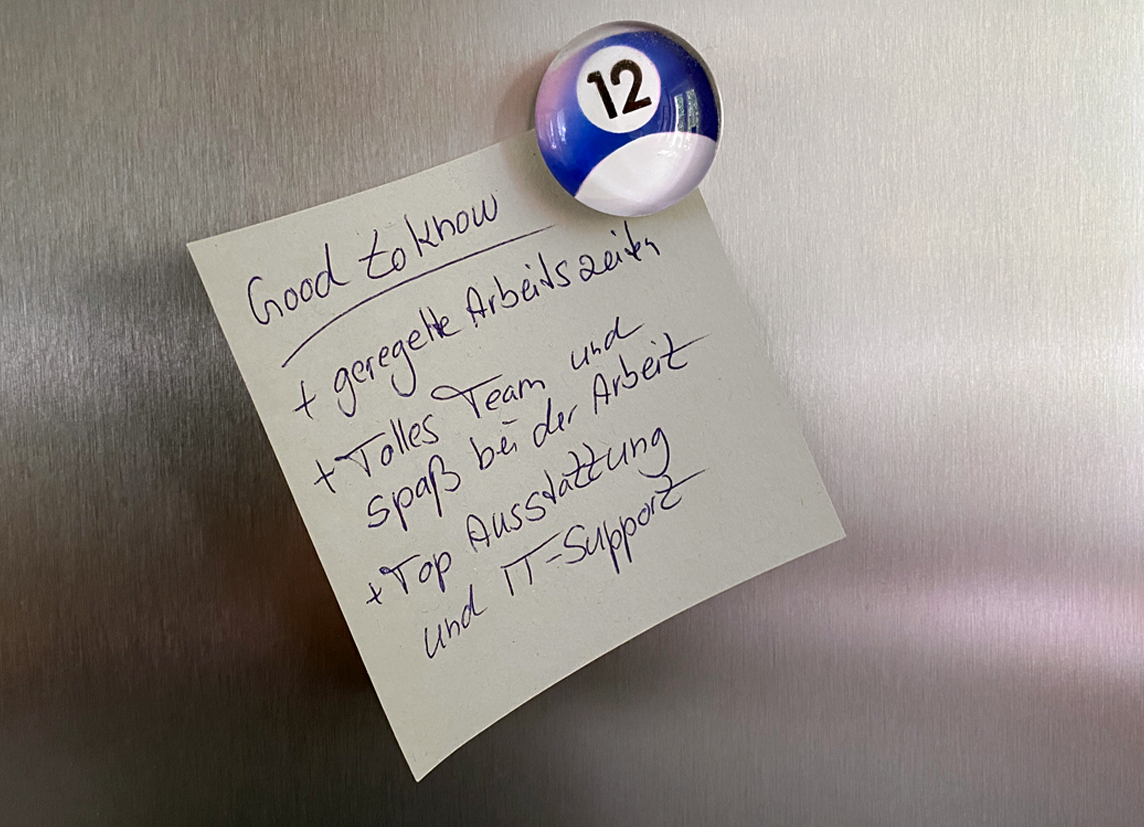 12
Good to know
+ geregelte Arbeitszeiten
+ Tolles Team und
spaß bei der Arbeit
+ Top Ausstattung
und IT-Support